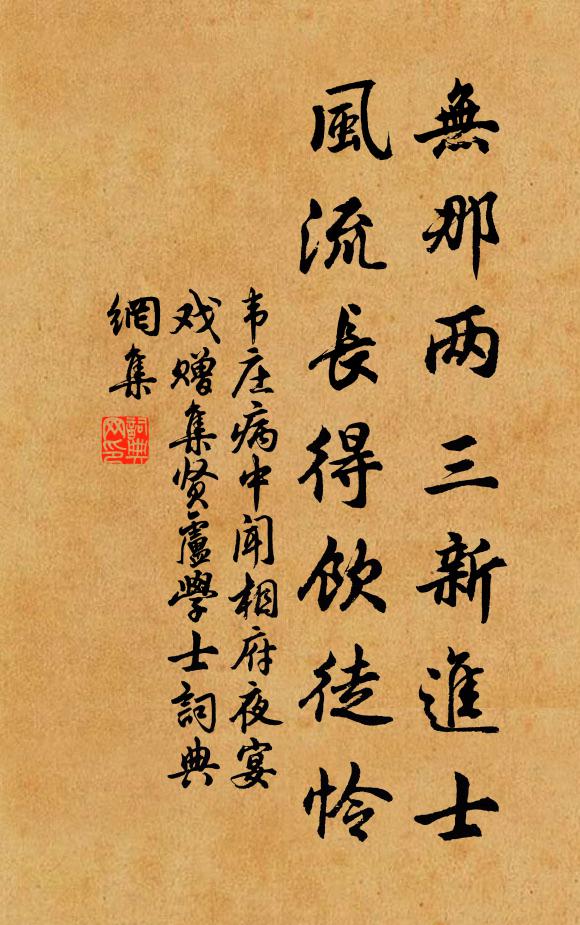 無那两三新進士
風流長得飲徒怜
韦庄病中闻相府夜宴
戏赠集贤盧學士詞典
網集
詞典
网印